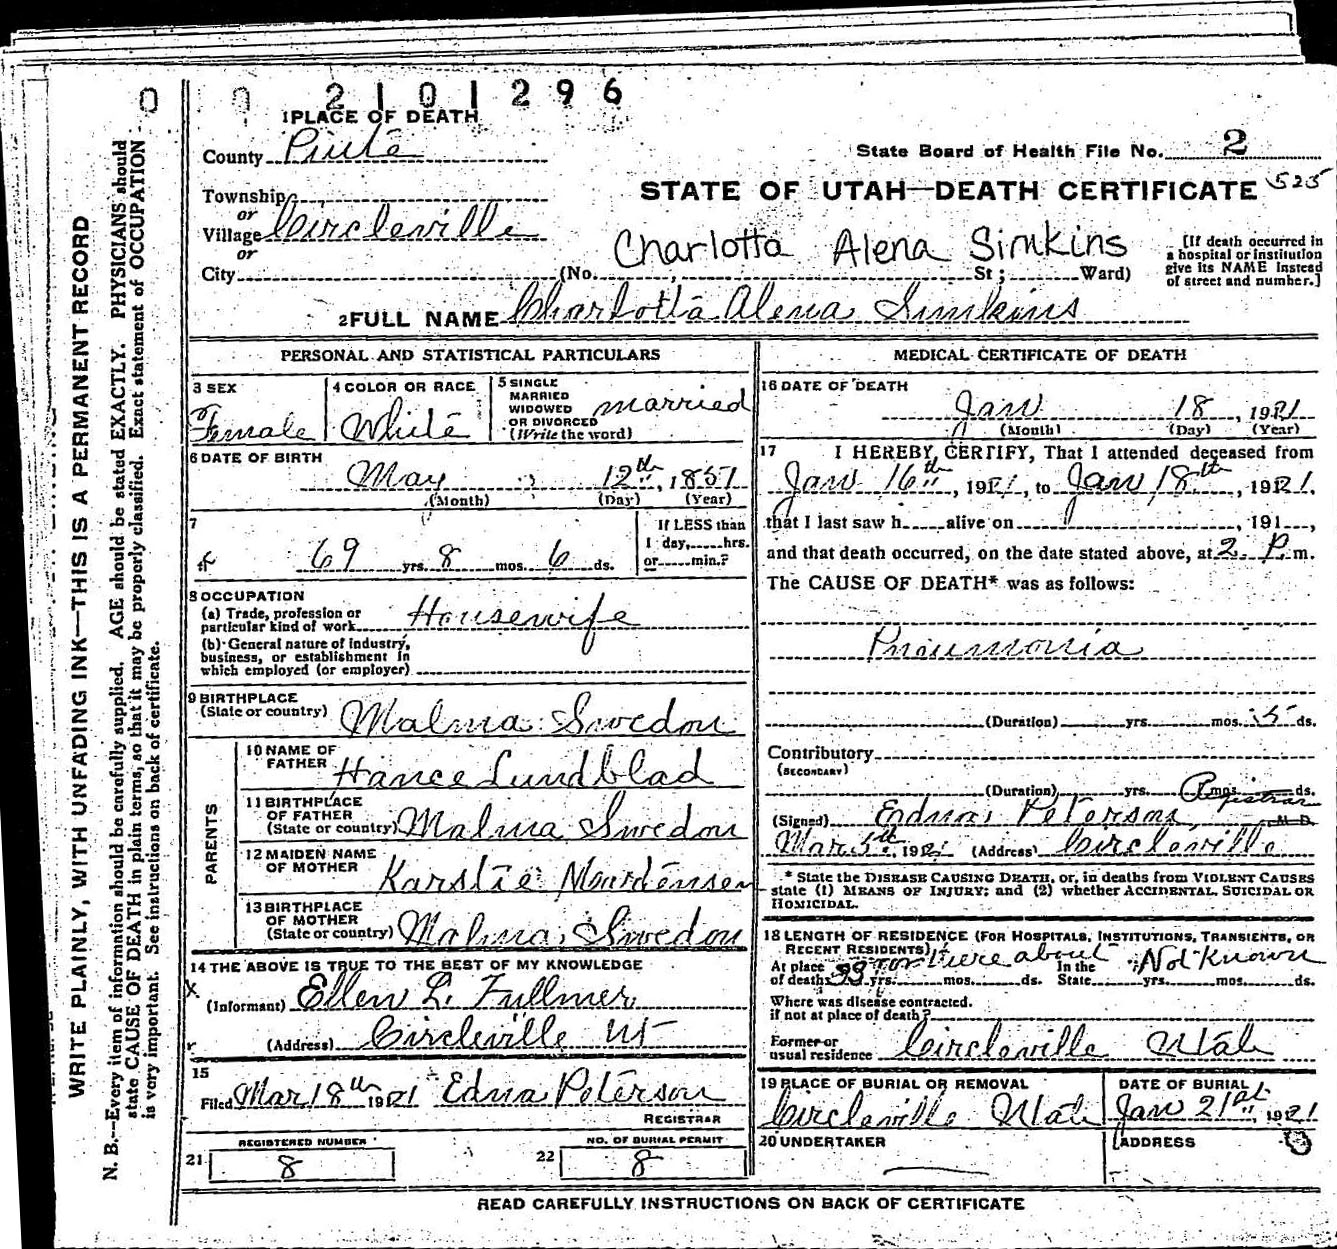 0 0 2101296
1 PLACE OF DEATH
County Piute
State Board of Health File No. 2
Township
or
Village Circleville
or
City (No. St; Ward)
STATE OF UTAH—DEATH CERTIFICATE 525
Charlotta Alena Simkins
[If death occurred in
a hospital or institution
give its NAME instead
of street and number.]
2 FULL NAME Charlotta Alena Simkins
PERSONAL AND STATISTICAL PARTICULARS
3 SEX
Female
4 COLOR OR RACE
White
5 SINGLE
MARRIED
WIDOWED
OR DIVORCED
(Write the word)
married
6 DATE OF BIRTH
May 12th, 1851
(Month) (Day) (Year)
7
69 yrs. 8 mos. 6 ds.
If LESS than
1 day, hrs.
or min.?
8 OCCUPATION
(a) Trade, profession or
particular kind of work Housewife
(b) General nature of industry,
business, or establishment in
which employed (or employer)
9 BIRTHPLACE
(State or country) Malma Swedon
PARENTS
10 NAME OF
FATHER Hance Lundblad
11 BIRTHPLACE
OF FATHER
(State or country) Malma Swedon
12 MAIDEN NAME
OF MOTHER Karstie Mourtensen
13 BIRTHPLACE
OF MOTHER
(State or country) Malma, Swedon
14 THE ABOVE IS TRUE TO THE BEST OF MY KNOWLEDGE
(Informant) Ellen L. Fullmer
(Address) Circleville Ut
15
Filed Mar 18th 1921 Edna Peterson
REGISTRAR
REGISTERED NUMBER
21 8
NO. OF BURIAL PERMIT
22 8
MEDICAL CERTIFICATE OF DEATH
16 DATE OF DEATH
Jan 18, 1921
(Month) (Day) (Year)
17 I HEREBY CERTIFY, That I attended deceased from
Jan 16th, 1921, to Jan 18th, 1921,
that I last saw h alive on , 191 ,
and that death occurred, on the date stated above, at 2 P. m.
The CAUSE OF DEATH* was as follows:
Pnoumonia
(Duration) yrs. mos. 5 ds.
Contributory
(SECONDARY)
(Duration) yrs. mos. ds.
Registrar
(Signed) Edna Peterson M D
Mar 5th, 1921 (Address) Circleville
* State the DISEASE CAUSING DEATH, or, in deaths from VIOLENT CAUSES
state (1) MEANS OF INJURY; and (2) whether ACCIDENTAL, SUICIDAL OR
HOMICIDAL.
18 LENGTH OF RESIDENCE (FOR HOSPITALS, INSTITUTIONS, TRANSIENTS, OR
RECENT RESIDENTS)
At place
of death 33 yrs. or there about mos. ds. In the
State Not Known yrs. mos. ds.
Where was disease contracted.
if not at place of death?
Former or
usual residence Circleville Utah
19 PLACE OF BURIAL OR REMOVAL
Circleville Utah
DATE OF BURIAL
Jan 21st, 1921
20 UNDERTAKER
ADDRESS
READ CAREFULLY INSTRUCTIONS ON BACK OF CERTIFICATE
WRITE PLAINLY, WITH UNFADING INK—THIS IS A PERMANENT RECORD
N. B.—Every item of information should be carefully supplied. AGE should be stated EXACTLY. PHYSICIANS should
state CAUSE OF DEATH in plain terms, so that it may be properly classified. Exact statement of OCCUPATION
is very important. See instructions on back of certificate.